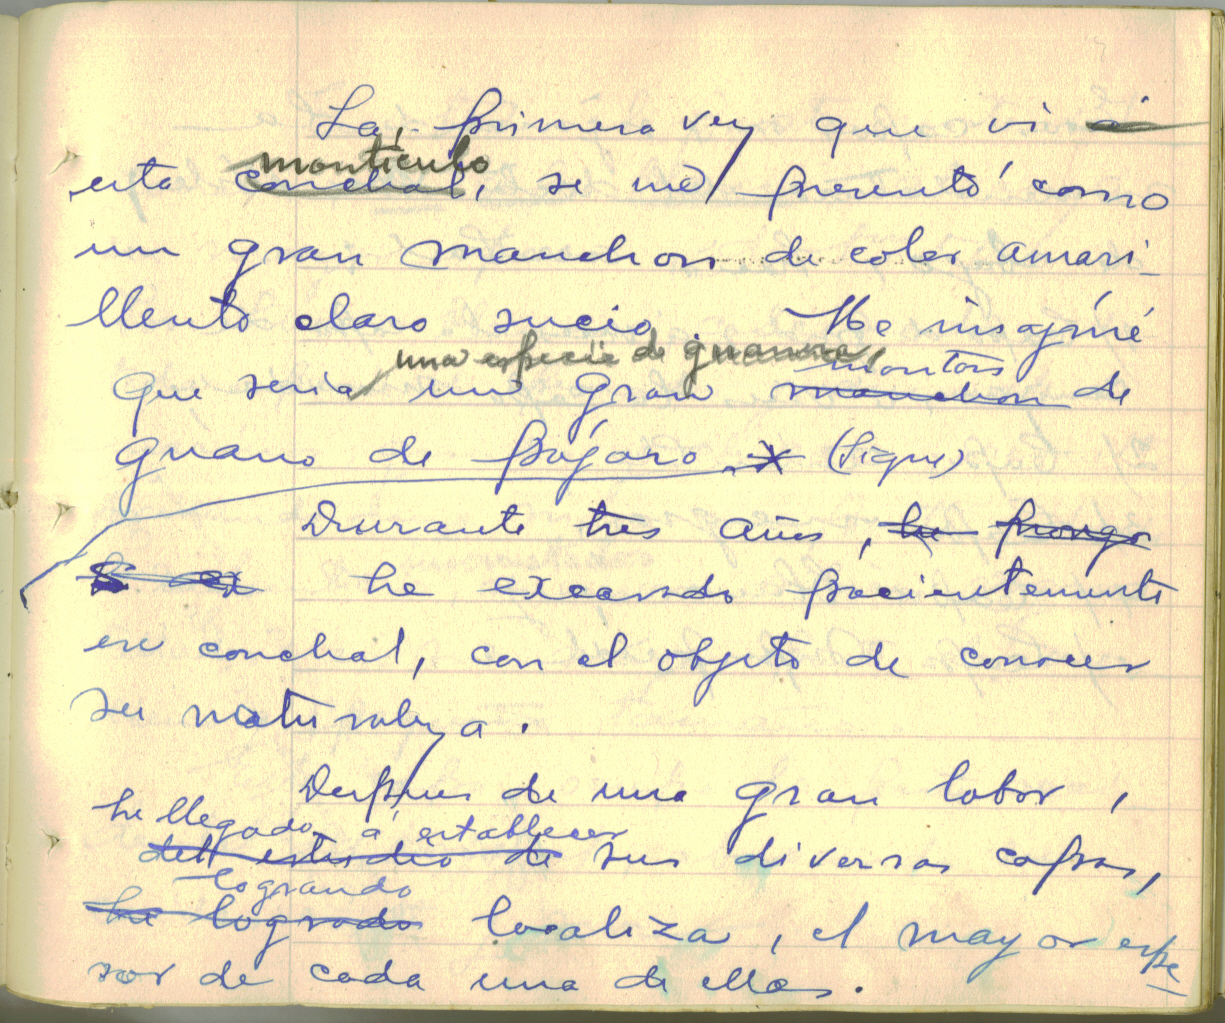 La primera vez que vi a
montículo
esta conchal, se me presentó como
un gran manchon de color amari-
llento claro sucio. Me imaginé
una especie de guanera,
montón
que seria un gran manchon de
guano de pájaro. x (Sigue)
Durante tres años, he prongo
he excavado pacientemente
ese conchal, con el objeto de conocer
su naturaleza.
Despues de una gran labor,
he llegado á establecer
del estudio de sus diversas capas,
logrando
he logrado localiza, el mayor espe
sor de cada una de ellas.